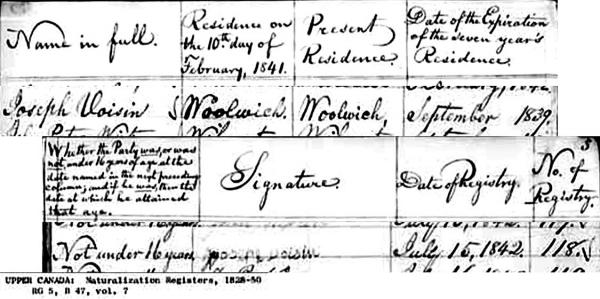 Name in full.
Residence on the 10th day of February, 1841.
Present Residence.
Date of the Expiration of the seven year's Residence.
Joseph Voisin Woolwich. Woolwich, September 1839.
Whether the Party was, or was not, under 16 years of age at the date named in the next preceding column; and if he was, then the date at which he attained that age.
Signature.
Date of Registry.
No. of Registry.
Not under 16 years. Joseph Voisin July 15, 1842. 118.
UPPER CANADA: Naturalization Registers, 1828-50
RG 5, B 47, vol. 7